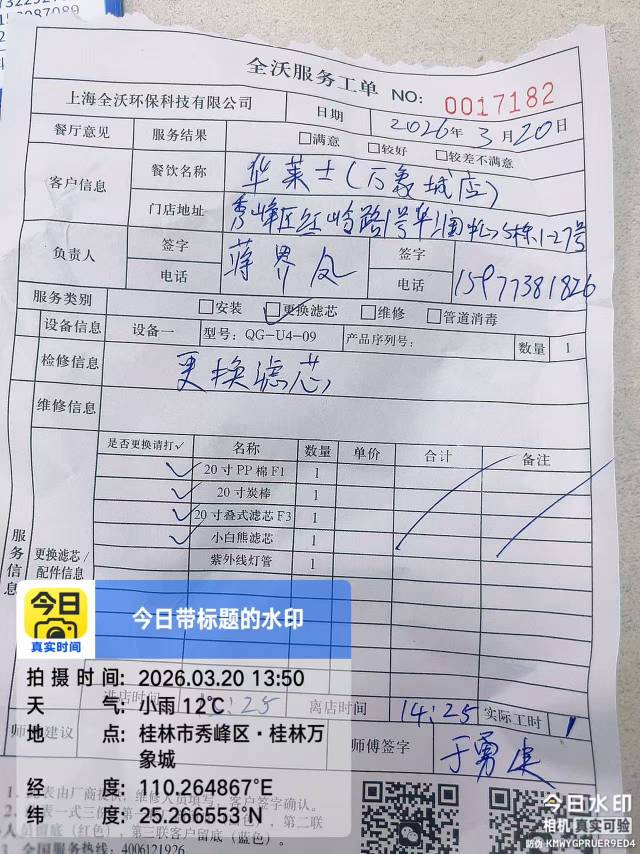 全沃服务工单 NO: 0017182
上海全沃环保科技有限公司 日期 2026年3月20日
餐厅意见 服务结果 □满意 □较好 □较差不满意
客户信息 餐饮名称 华莱士(万象城店)
门店地址 秀峰区红岭路1号华润 栋1-27号
负责人 签字 蒋界 签字
电话 电话 15977381826
服务类别 □安装 ☑更换滤芯 □维修 □管道消毒
设备信息 设备一 型号: QG-U4-09 产品序列号: 数量 1
检修信息 更换滤芯
维修信息
服务信息
更换滤芯/配件信息
是否更换请打✓ 名称 数量 单价 合计 备注
✓ 20寸PP棉F1 1
✓ 20寸炭棒 1
✓ 20寸叠式滤芯F3 1
✓ 小白熊滤芯 1
紫外线灯管 1
今日
真实时间
今日带标题的水印
拍摄时间: 2026.03.20 13:50
天气: 小雨 12℃
地点: 桂林市秀峰区·桂林万象城
经度: 110.264867°E
纬度: 25.266553°N
进店时间 :25 离店时间 14:25 实际工时 1
建议 师傅签字 于勇
表由厂商提供,维修人员填写,客户签字确认。
表一式三 第二联
人员留底(红色),第三联客户留底(蓝色)。
全国服务热线: 4006121926
今日水印
相机 真实可验
防伪 KMWYGPRUER9ED4